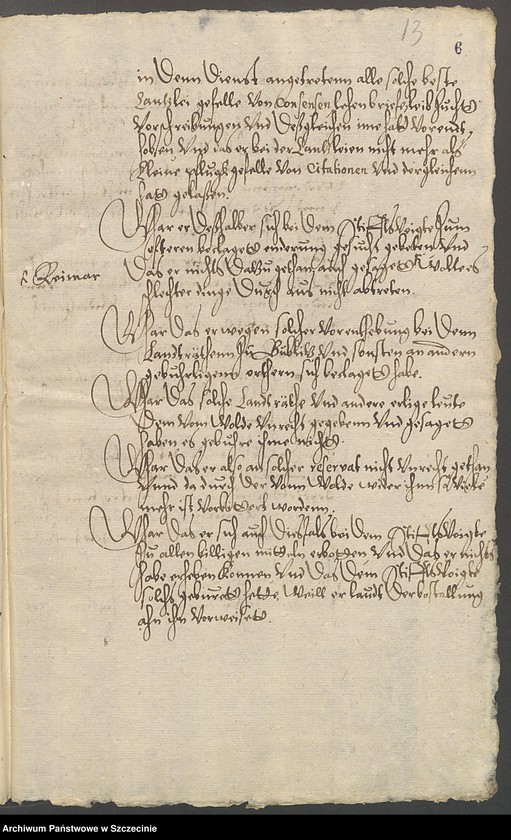 13
6
in Denn Dienst angetretenn alle solche beste
Cantzlei gefelle von Consensen lehenbriefe leibzuchts
vorschreibungen und Desgleichen ime hatt vorendt
hoben und das er bei der Cantzleien nicht mehr als
kleine gefelle von Citationen und dergleichenn
hatt gelassen.
War er Desshalber sich bei dem Stifftsvoigte zum
offteren beclagett enderung gesucht gebeten und
das er nichts dabei gethan auch gesagett wolte es
schlechter dinge durch aus nicht abtreten.
R Reimar
War das er wegen solcher vorenthebung bei denn
Landtrathenn zu Bublitz und sonsten an andern
geburligenn orthern sich beclagett habe.
War das solche Landträthe und andere erlige leute
dem vom Wolde unrecht gegebenn und gesagett
haben es gebuhre ihme nicht.
War das er also an solcher reservat nicht unrecht gethan
unnd dadurch der vom Wolde wider ihnn so viele
mehr ist vorbittert wordenn.
War das er sich auch diesfals bei dem Stifftsvoigte
zu allen billigen mitteln erbotten und das er nichts
habe erheben konnen und das dem Stifftsvoigte
solchs geburett hette, weill er laudt der bestallung
ahn ihn vorweisett.
Archiwum Państwowe w Szczecinie